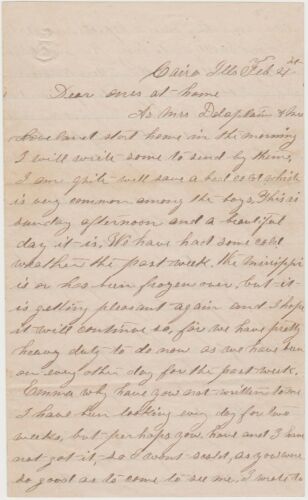 Cairo Ills Feb. 21st
Dear ones at home
As Mrs Delaplain & Mrs
Loveland start home in the morning
I will write some to send by them,
I am quite well save a bad cold which
is very common among the boys, This is
sunday afternoon and a beautiful
day it is, We have had some cold
weather the past week. the Missippi
is or has been frozen over, but it
is getting pleasant again and I hope
it will continue so, for we have pretty
heavy duty to do now as we have been
on every other day for the past week.
Emma why have you not written to me
I have been looking evry day for two
weeks, but perhaps you have and I have
not got it, so I wont scold, as you were
so good as to come to see me. I wrote to